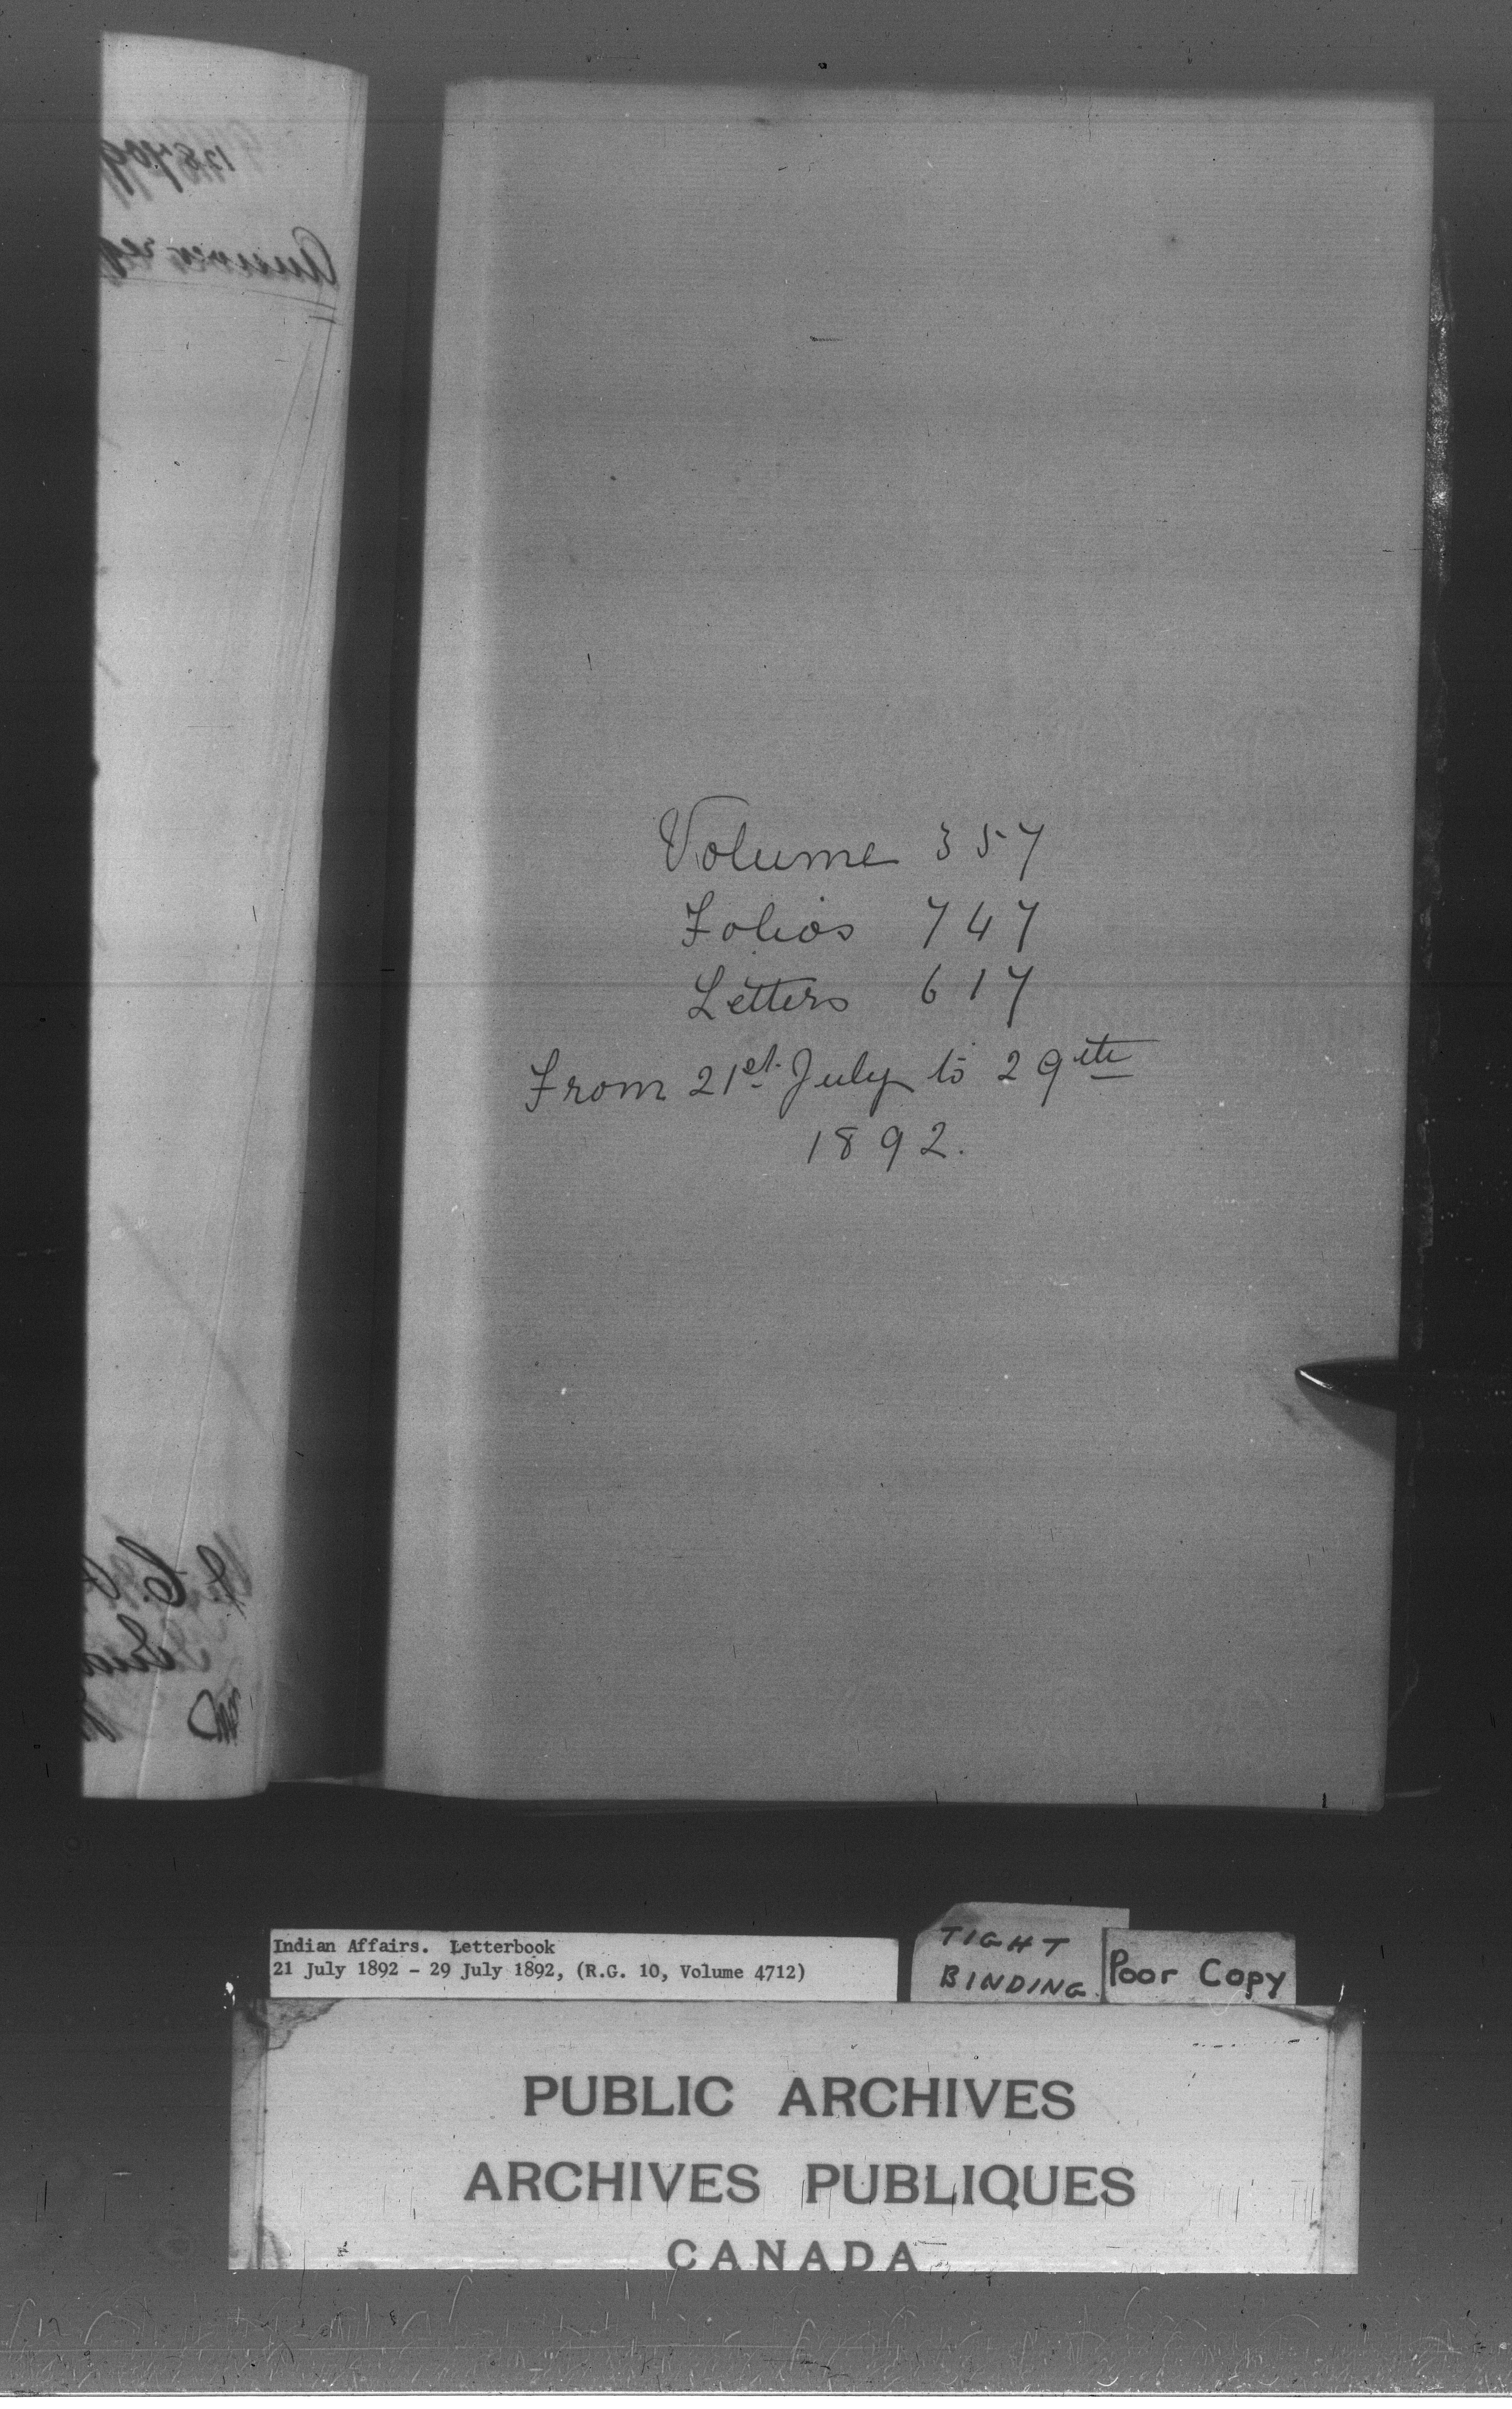 Volume 357
Folios 747
Letters 617
From 21st July to 29th
1892.
Indian Affairs. Letterbook
21 July 1892 - 29 July 1892, (R.G. 10, Volume 4712)
TIGHT
BINDING.
Poor Copy
PUBLIC ARCHIVES
ARCHIVES PUBLIQUES
CANADA